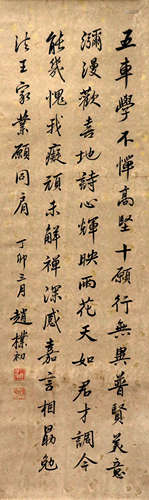 五車學不憚高堅十願行無異普賢美意
瀰漫歡喜地詩心輝映雨花天如君才調今
能幾愧我癡頑未解禪深感嘉言相勗勉
法王家業願同肩
丁卯三月趙樸初